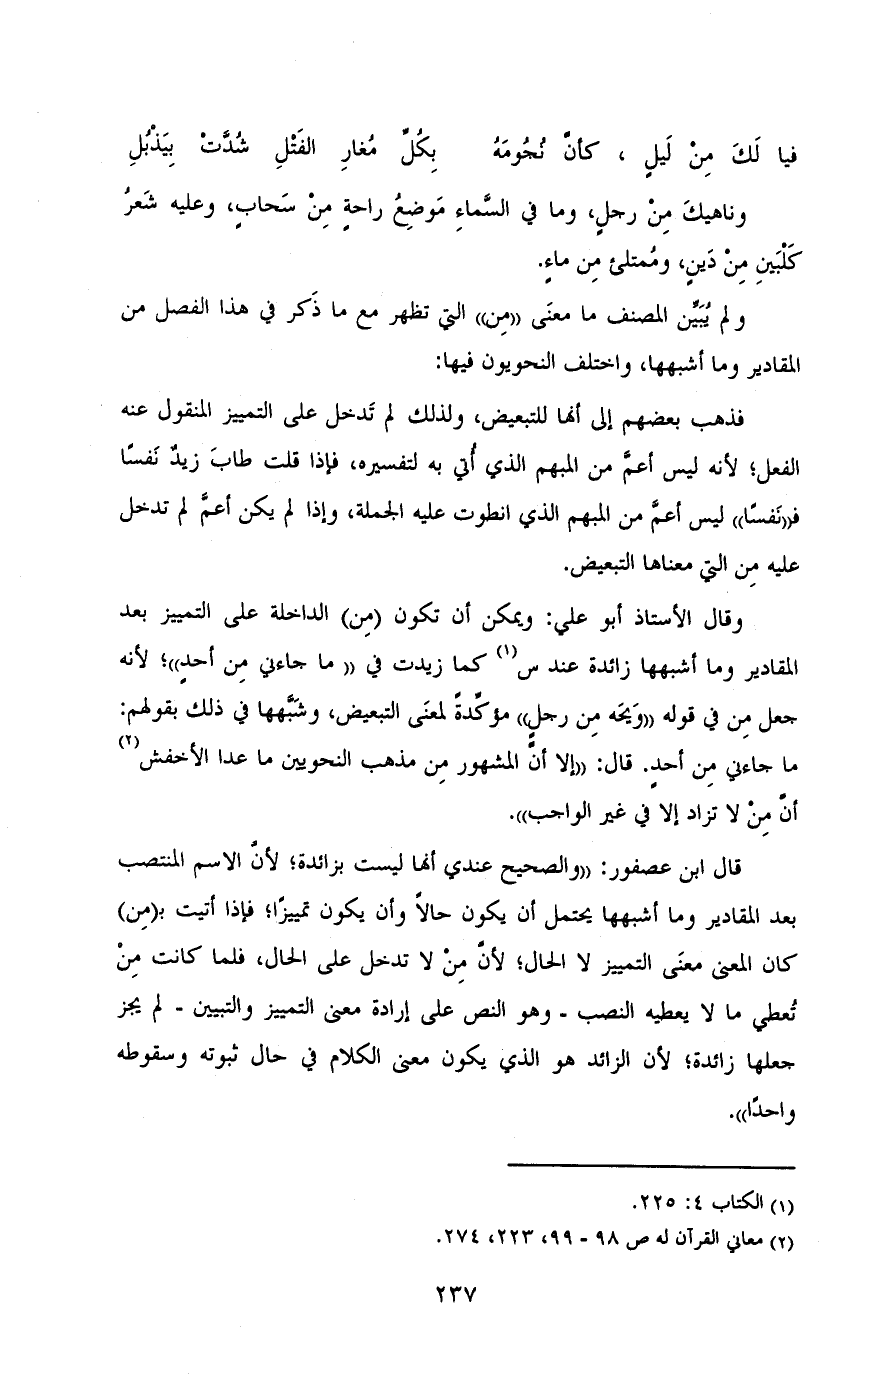 فيا لَكَ مِنْ لَيلٍ ، كأنَّ نُجُومَهُ بِكُلِّ مُغارِ الفَتْلِ شُدَّتْ بِيَذْبُلِ
وناهيكَ مِنْ رجلٍ، وما في السَّماءِ مَوضِعُ راحةٍ مِنْ سَحابٍ، وعليه شَعرُ
كَلْبَينِ مِنْ دَينٍ، ومُمتلئ مِن ماءٍ.
ولم يُبَيِّن المصنف ما معنَى ((مِن)) التي تظهر مع ما ذَكر في هذا الفصل من
المقادير وما أشبهها، واختلف النحويون فيها:
فذهب بعضهم إلى أنها للتبعيض، ولذلك لم تَدخل على التمييز المنقول عنه
الفعل؛ لأنه ليس أعمَّ من المبهم الذي أُتي به لتفسيره، فإذا قلت طابَ زيدٌ نَفسًا
فـ((نَفسًا)) ليس أعمَّ من المبهم الذي انطوت عليه الجملة، وإذا لم يكن أعمَّ لم تدخل
عليه مِن التي معناها التبعيض.
وقال الأستاذ أبو علي: ويمكن أن تكون (مِن) الداخلة على التمييز بعد
المقادير وما أشبهها زائدة عند س(١) كما زيدت في (( ما جاءني مِن أحدٍ))؛ لأنه
جعل مِن في قوله ((وَيحَه مِن رجلٍ)) مؤكِّدةً لمعنَى التبعيض، وشَبَّهها في ذلك بقولهم:
ما جاءني مِن أحدٍ. قال: ((إلا أنَّ المشهور مِن مذهب النحويين ما عدا الأخفش(٢)
أنَّ مِنْ لا تزاد إلا في غير الواجب)).
قال ابن عصفور: ((والصحيح عندي أنها ليست بزائدة؛ لأنَّ الاسم المنتصب
بعد المقادير وما أشبهها يحتمل أن يكون حالاً وأن يكون تمييزًا؛ فإذا أتيت بـ(مِن)
كان المعنى معنَى التمييز لا الحال؛ لأنَّ مِنْ لا تدخل على الحال، فلما كانت مِنْ
تُعطي ما لا يعطيه النصب - وهو النص على إرادة معنى التمييز والتبيين - لم يجز
جعلها زائدة؛ لأن الزائد هو الذي يكون معنى الكلام في حال ثبوته وسقوطه
واحدًا)).
(١) الكتاب ٤: ٢٢٥.
(٢) معاني القرآن له ص ٩٨ - ٩٩، ٢٢٣، ٢٧٤.
٢٣٧